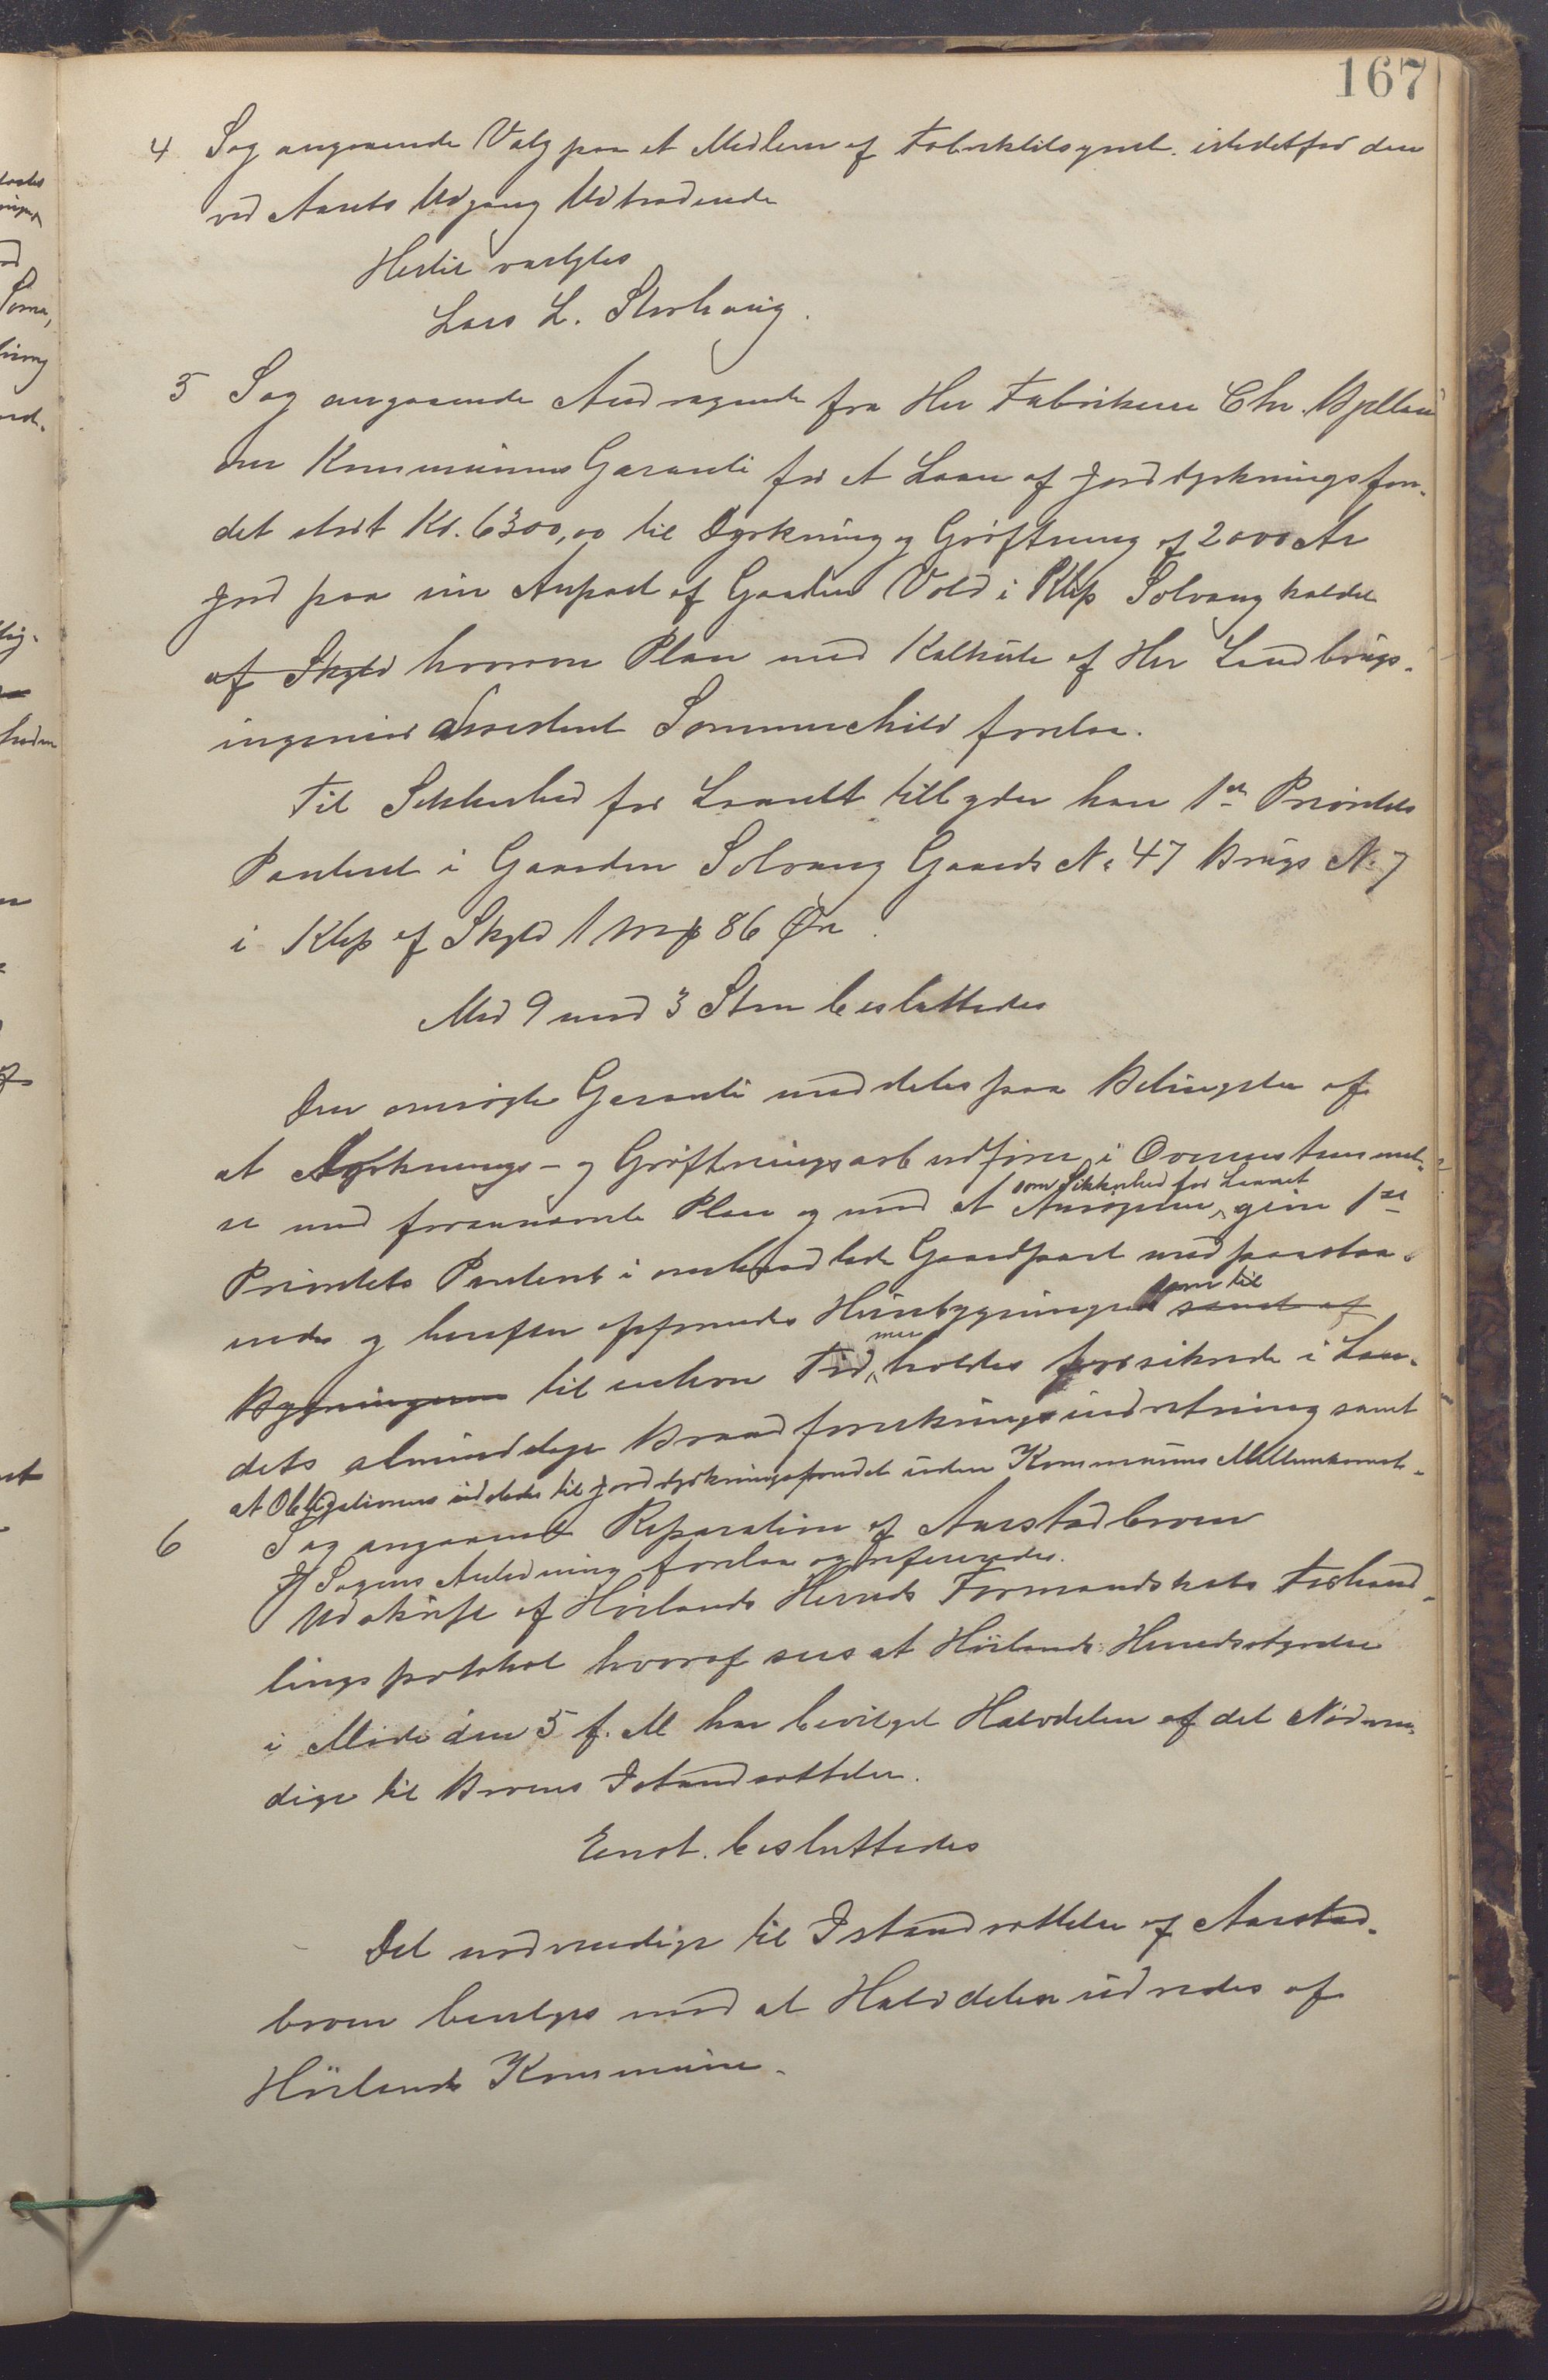 167
4 Sag angaaende Valg paa et Medlem af Fabriktilsynet istedetfor den
ved Aarets Udgang Udtrædende
Hertil valgtes
Lars L. Storhaug.
5 Sag angaaende Andragende fra Her Fabrikeier Chr. Bjelland
om Kommunens Garanti for et Laan af Jorddyrkningsfon-
det stort Kr. 6300,00 til Dyrkning og Grøftning af 2000 Ar
Jord paa sin Anpart af Gaarden Vold i Klep Solvang kaldet
af Skyld hvorom Plan med Kalkule af Her Landbrugs-
ingeniør Assistent Sommerschild forelaa.
Til Sikkerhed for Laanet tilbyder han 1ste Prioritets
Panteret i Gaarden Solvang Gaards No 47 Brugs No 7
i Klep af Skyld 1 mrk 86 Øre.
Med 9 mod 3 Stem besluttedes
Den ansøgte Garanti meddeles paa Betingelse af
at Dyrknings- og Grøftningsarb udføres i Overensstemmel-
se med forannævnte Plan og med at Ansøgeren som Sikkerhed for Laanet giver 1ste
Prioritets Panteret i omhandlede Gaardpart med paastaa-
ende og herefter opførende Husebygninger som til samt at
Bygningerne til enhver Tid maa holdes forsikrede i Lan-
dets almindelige Brandforsikringsindretning samt
at Obligationen udstedes til Jorddyrkningsfondet uden Kommunens Mellemkomst.
6 Sag angaaende Reparation af Aarstadbroen
I Sagens Anledning forelaa og refereredes.
Udskrift af Høilands Herreds Formandskabs Forhand-
lingsprotokol hvoraf sees at Høilands Herredsstyrelse
i Møde den 5 f. M har bevilget Halvdelen af det Nødven-
dige til Broens Istandsættelse.
Enst. besluttedes
Det nødvendige til Istandsættelse af Aarstad-
broen bevilges mod at Halvdelen udredes af
Høilands Kommune.